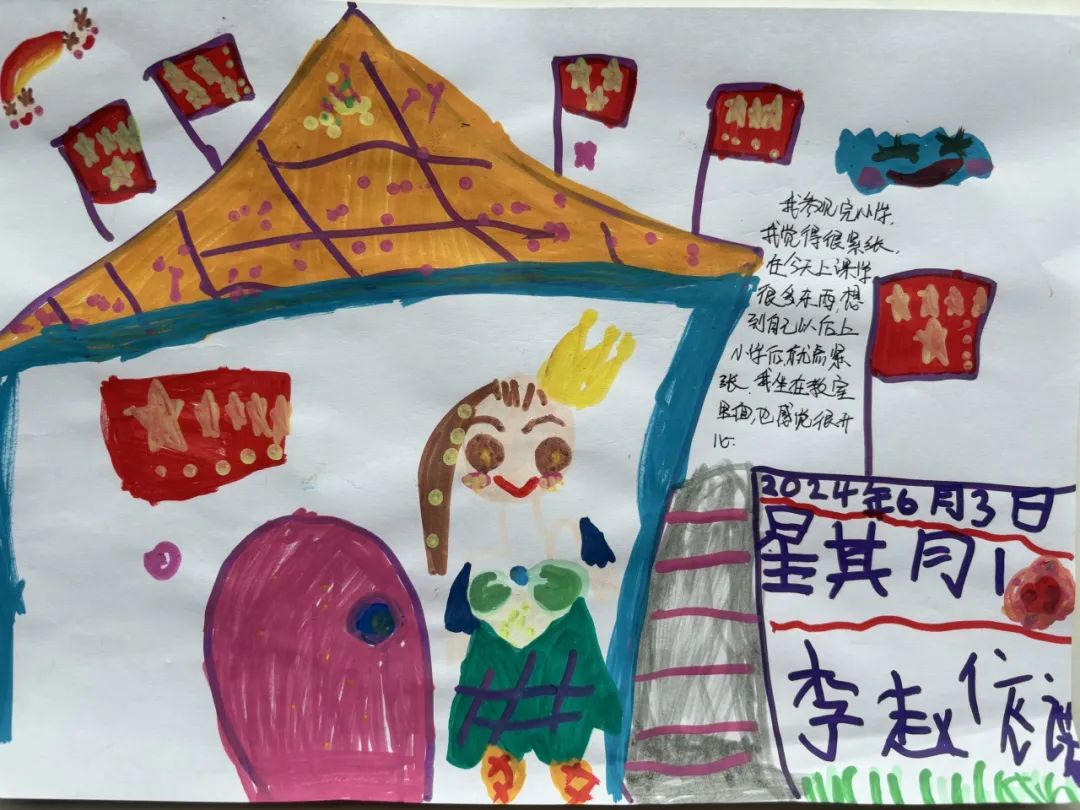 我参观完小学,
我觉得很紧张,
在今天上课学
很多东西,想
到自己以后上
小学后就紧
张.我坐在教室
里面,也感觉很开
心.
2024年6月3日
星其月1
李赵依